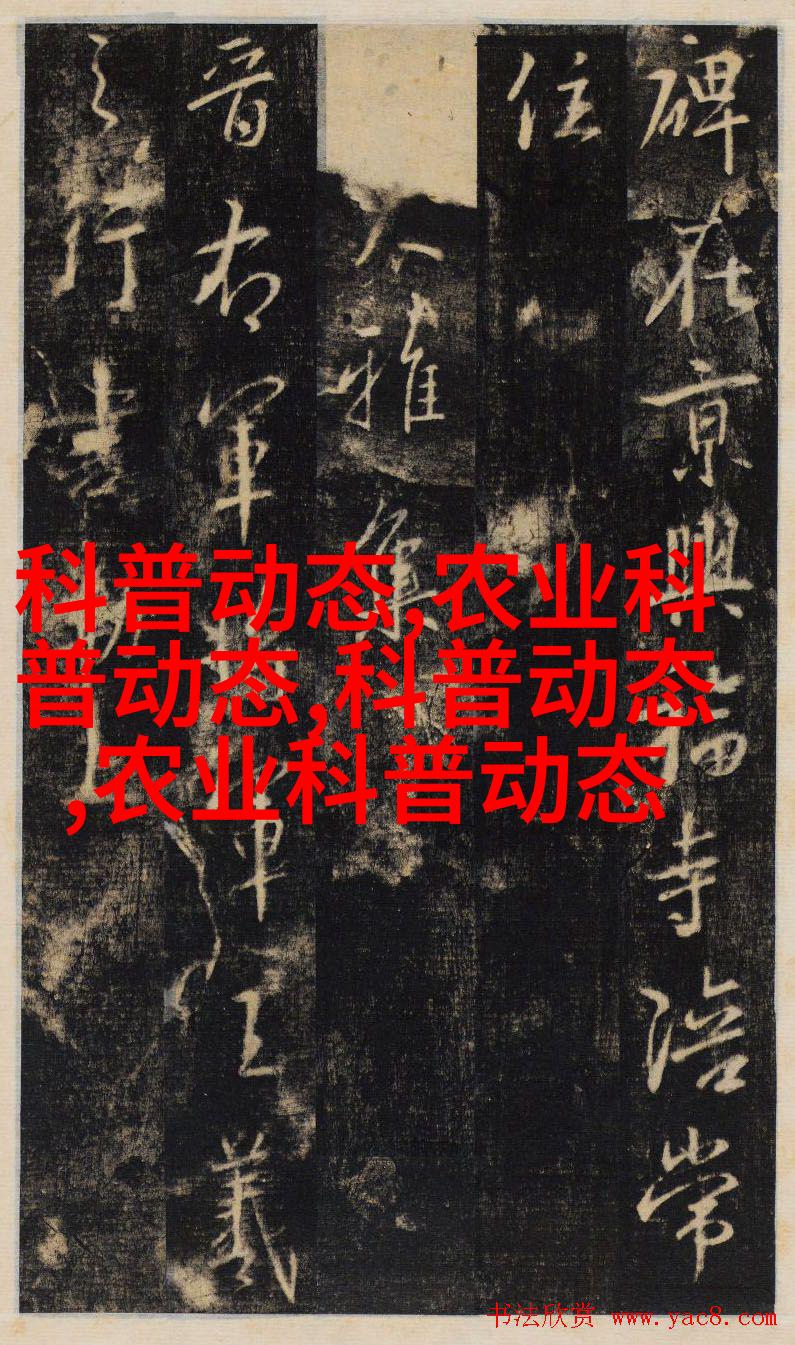 碑在京興福寺陪常
住
大雅集
晉右軍軍王羲
之行書
科普动态,农业科
普动态,科普动态
,农业科普动态
书法欣赏 www.yac8.com